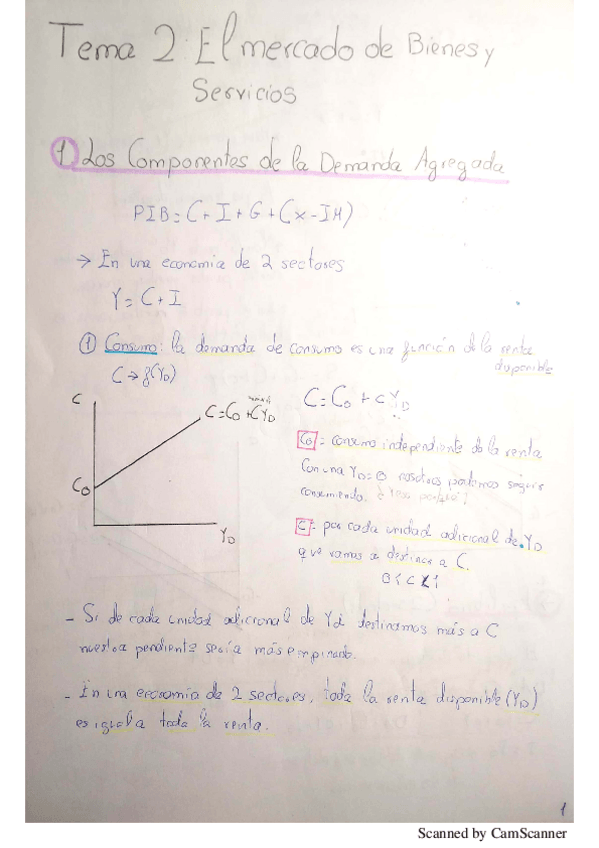 Tema 2: El mercado de Bienes y
Servicios
1 Los Componentes de la Demanda Agregada
PIB = C + I + G + (X - IM)
→ En una economia de 2 sectores
Y = C + I
① Consumo: la demanda de consumo es una función de la renta
disponible
C → f(YD)
C
C = C0 + CYD
C0
YD
C = C0 + cYD
C0 = consumo independiente de la renta
Con una YD = 0 nosotros podemos seguir
consumiendo.
C = por cada unidad adicional de YD
que vamos a destinar a C.
0 < C < 1
- Si de cada unidad adicional de Yd destinamos más a C
nuestra pendiente sería más empinada.
- En una economia de 2 sectores, toda la renta disponible (YD)
es igual a toda la renta.
1
Scanned by CamScanner